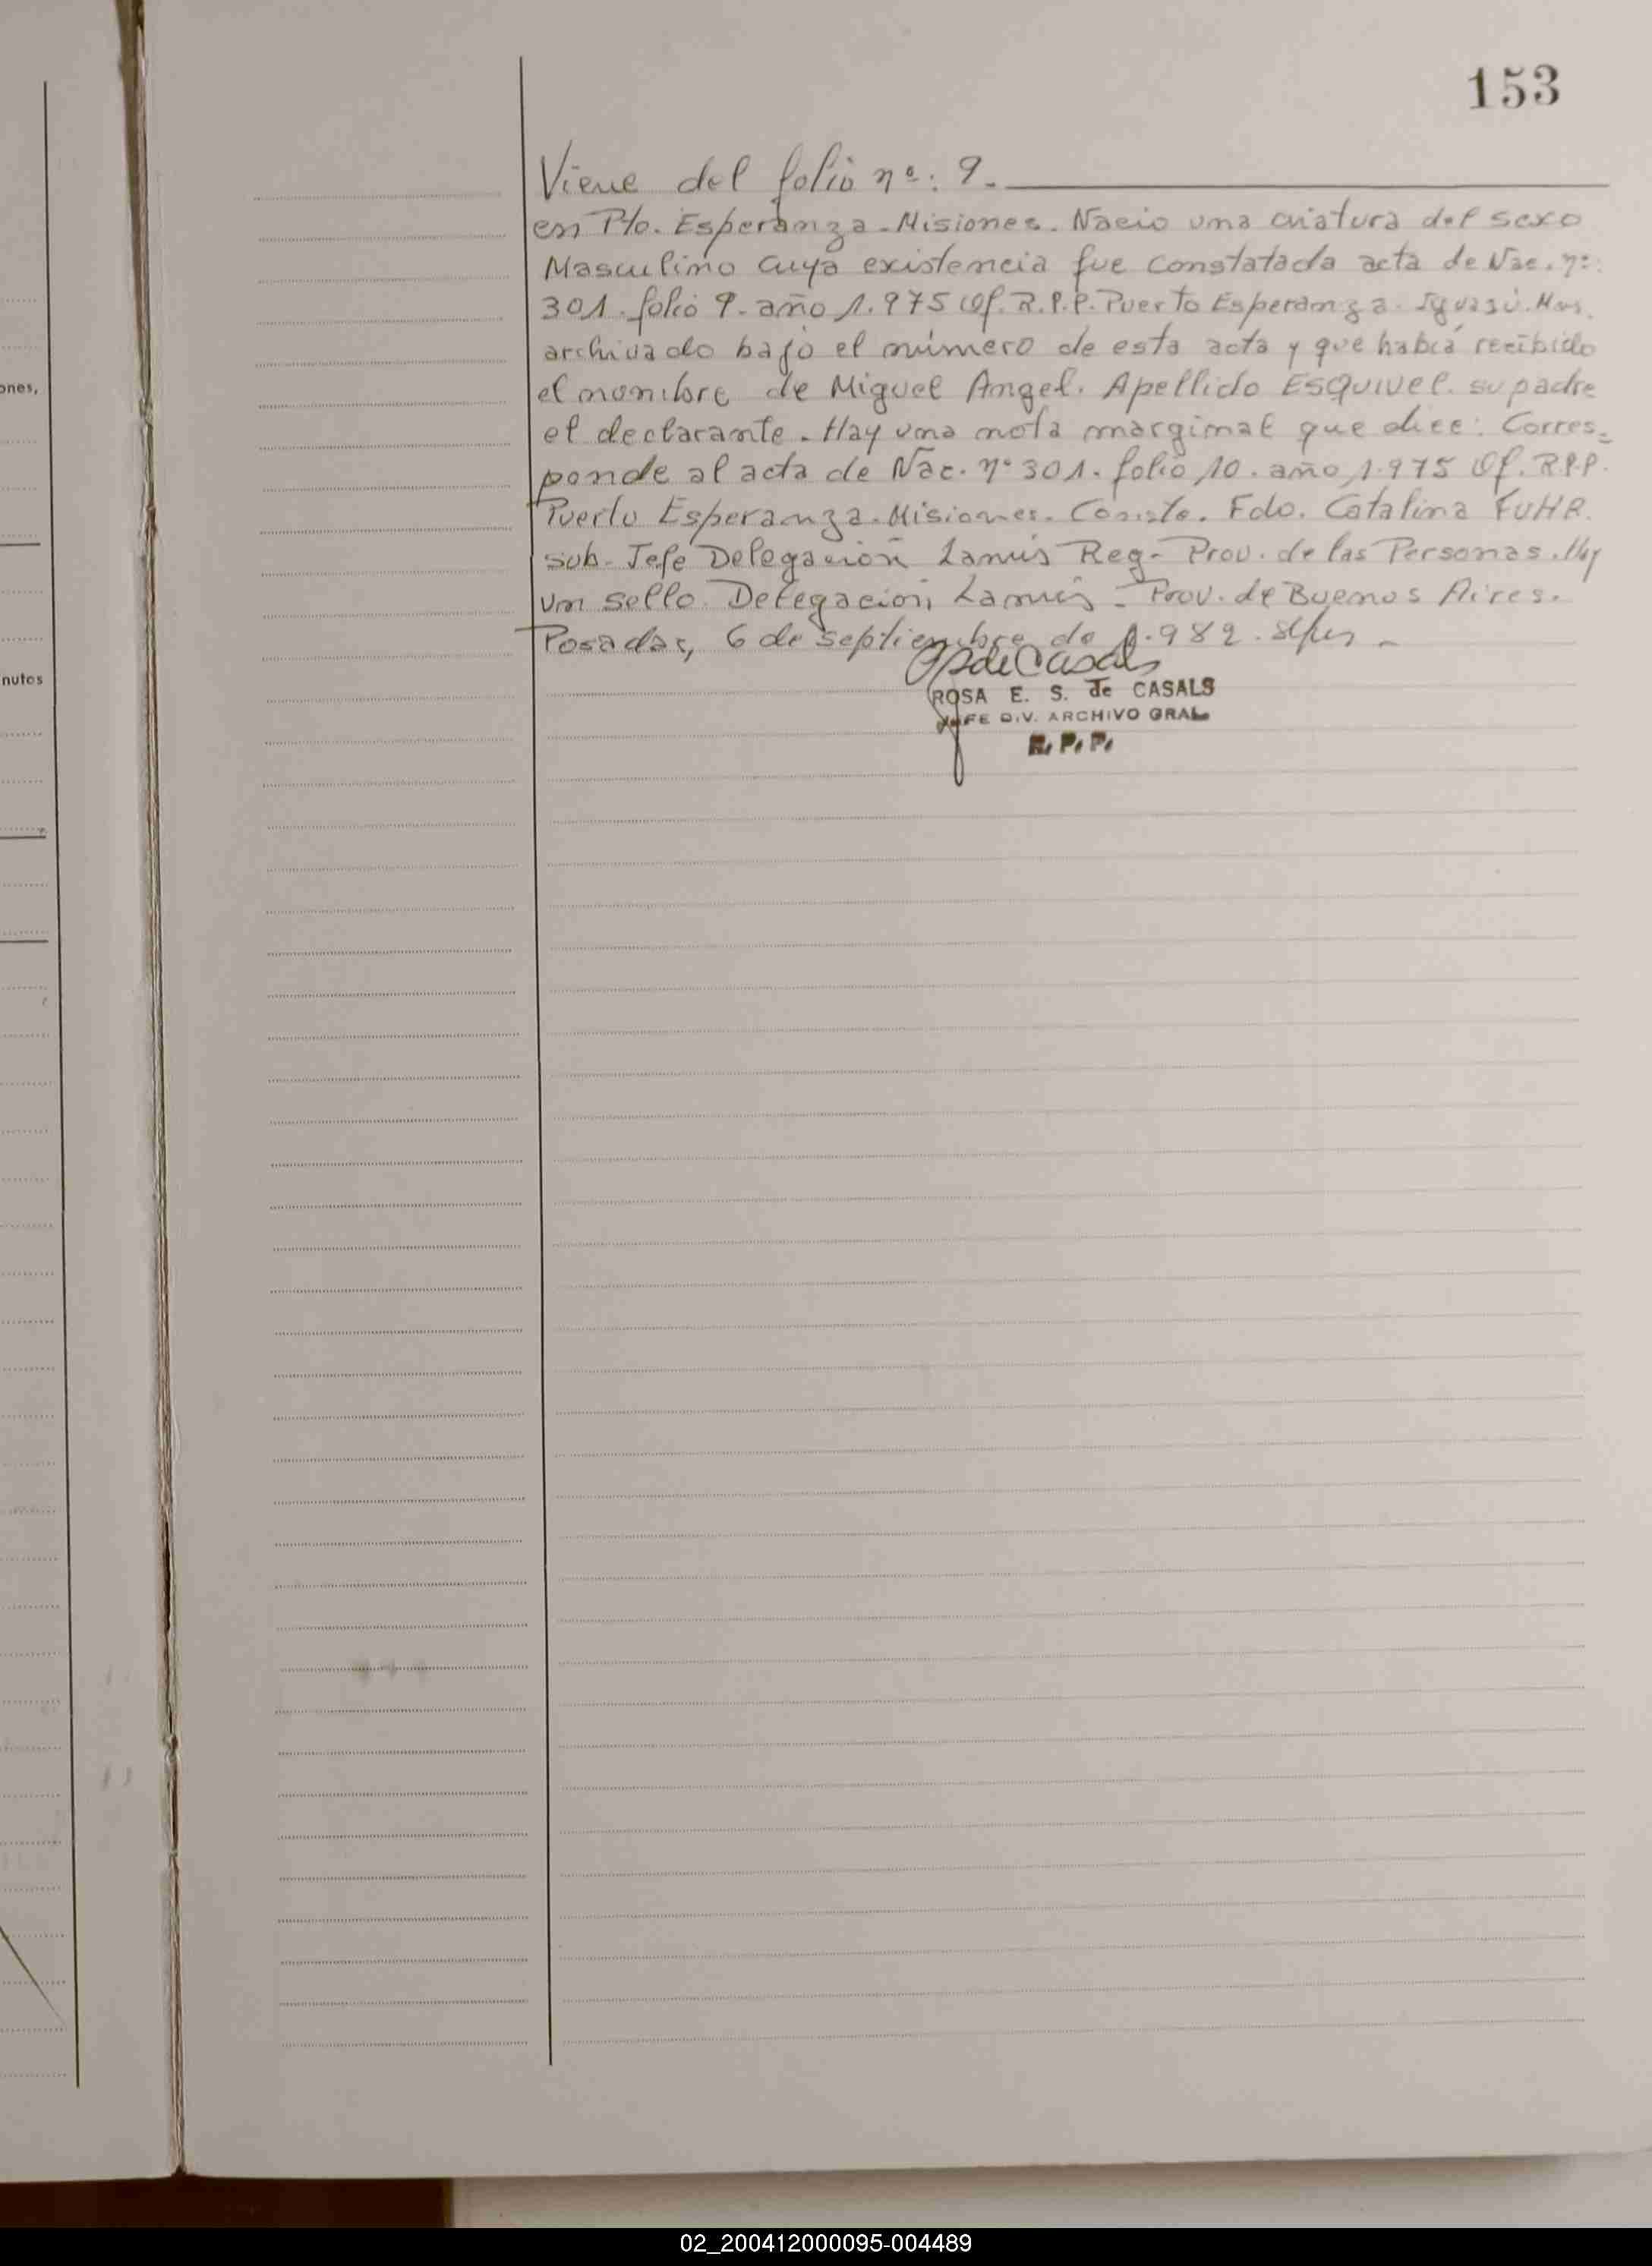 153
Viene del folio nº: 9.
en Pto. Esperanza - Misiones. Nacio una criatura del sexo
Masculino cuya existencia fue constatada acta de Nac. nº:
301. folio 9. año 1.975 Of. R.P.P. Puerto Esperanza. Iguazú.
archivado bajo el número de esta acta y que había recibido
el nombre de Miguel Angel. Apellido ESQUIVEL. su padre
ones,
el declarante. Hay una nota marginal que dice: Corres=
ponde al acta de Nac. nº 301. folio 10. año 1.975 Of. R.P.P.
Puerto Esperanza. Misiones. Conste. Fdo. Catalina FUHR.
sub-Jefe Delegación Lanús Reg- Prov. de las Personas. Hay
un sello. Delegación, Lanús - Prov. de Buenos Aires.
Posadas, 6 de septiembre de 1.982.
de Casals
nutos
ROSA E. S. de CASALS
JEFE DIV. ARCHIVO GRAL
R. P. P.
02_200412000095-004489